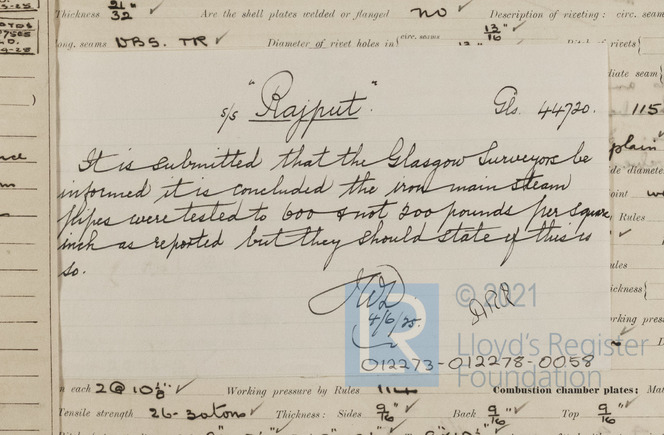 Thickness 21/32 ✓ Are the shell plates welded or flanged no ✓ Description of riveting: circ. seams
long. seams DBS. TR ✓ Diameter of rivet holes in circ. seams 13/16
s/s "Rajput" Gls. 44720.
It is submitted that the Glasgow Surveyors be
informed it is concluded the iron main steam
pipes were tested to 600 & not 200 pounds per square
inch as reported but they should state if this is
so.
4/6/25
© 2021
Lloyd's Register
Foundation
012273-012278-0058
115
plain
Rules
n each 2 @ 10 1/8" ✓ Working pressure by Rules 114 Combustion chamber plates:
Tensile strength 26-30 tons ✓ Thickness: Sides 9/16" ✓ Back 9/16" ✓ Top 9/16" ✓